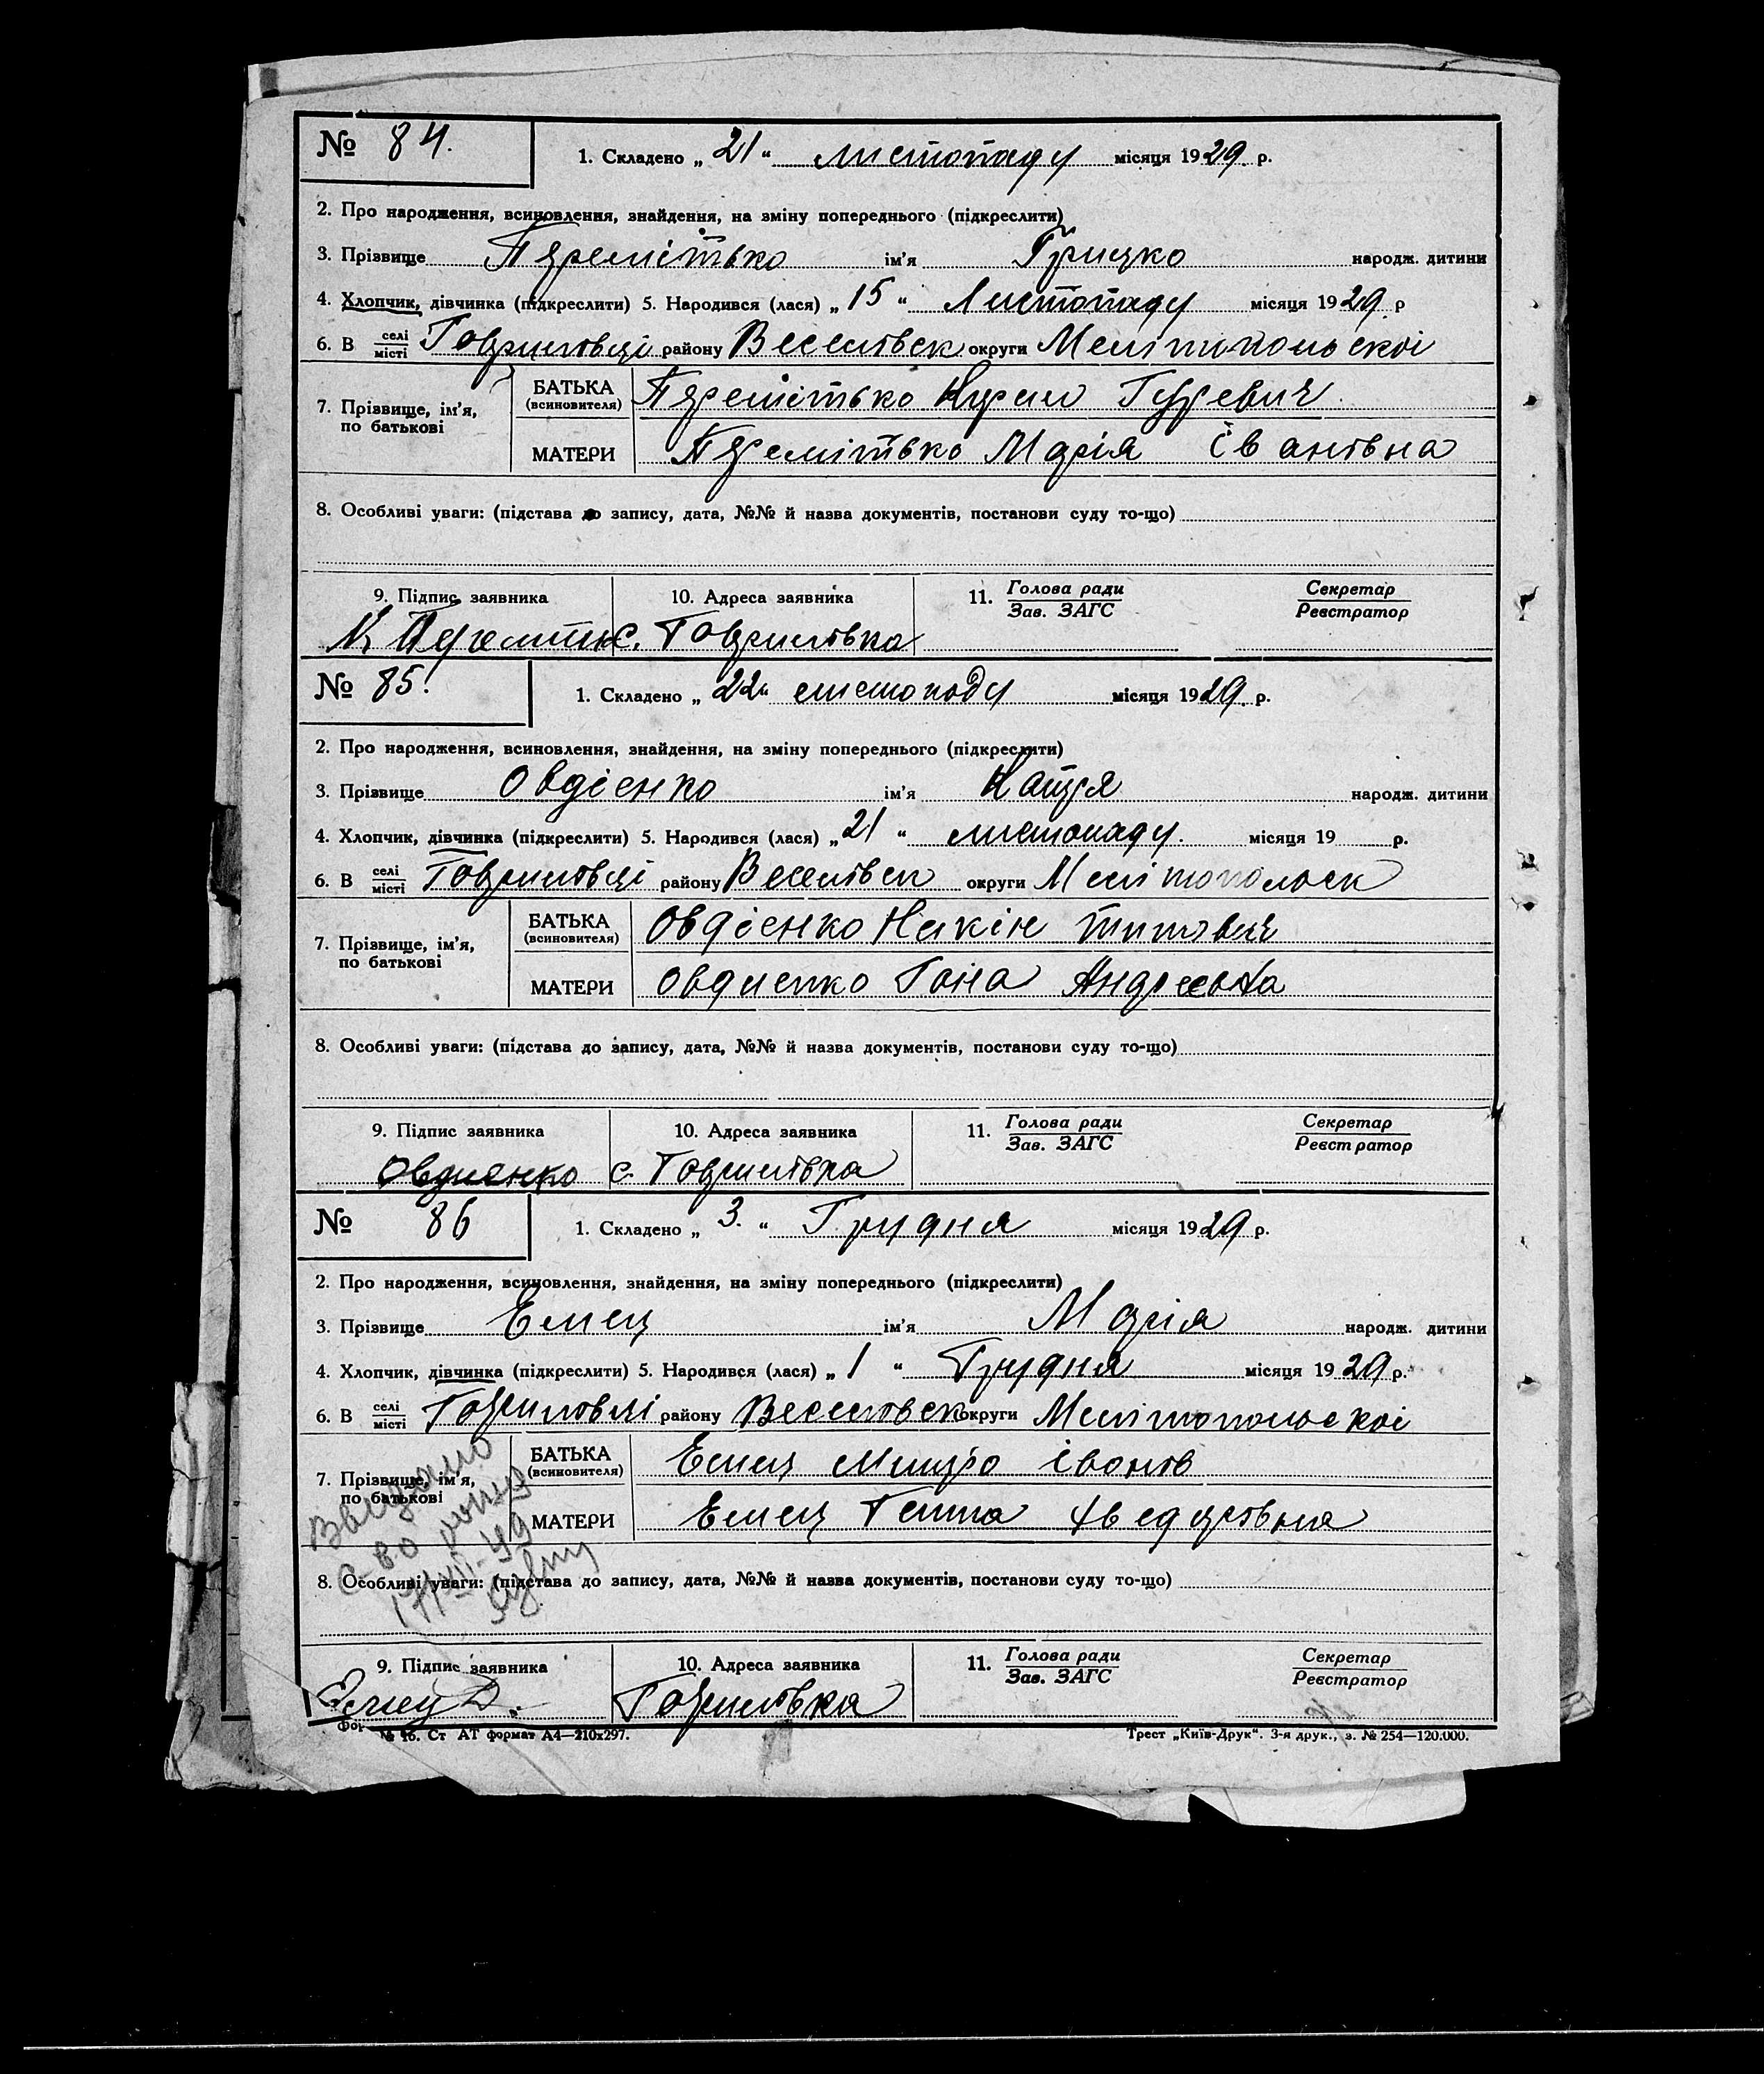 № 84. 1. Складено „21“ листопаду місяця 1929 р.
2. Про народження, всиновлення, знайдення, на зміну попереднього (підкреслити)
3. Прізвище ім'я Грицко народж. дитини
4. Хлопчик, дівчинка (підкреслити) 5. Народився (лася) „15“ Листопаду місяця 1929 р
6. В селі/місті Гаврилівці району Веселівск округи Мелітопольскоі
7. Прізвище, ім'я, по батькові
БАТЬКА (всиновителя) Гурєвич
МАТЕРИ Марія Іванівна
8. Особливі уваги: (підстава до запису, дата, №№ й назва документів, постанови суду то-що)
9. Підпис заявника 10. Адреса заявника 11. Голова ради/Зав. ЗАГС Секретар/Реєстратор
К с. Гаврилівка
№ 85. 1. Складено „22“ листопаду місяця 1929 р.
2. Про народження, всиновлення, знайдення, на зміну попереднього (підкреслити)
3. Прізвище Овдієнко ім'я Катря народж. дитини
4. Хлопчик, дівчинка (підкреслити) 5. Народився (лася) „21“ листопаду. місяця 19 р.
6. В селі/місті Гаврилівці району Веселівск округи Мелітопольск
7. Прізвище, ім'я, по батькові
БАТЬКА (всиновителя) Овдієнко
МАТЕРИ Овдиенко Андреевна
8. Особливі уваги: (підстава до запису, дата, №№ й назва документів, постанови суду то-що)
9. Підпис заявника 10. Адреса заявника 11. Голова ради/Зав. ЗАГС Секретар/Реєстратор
Овдиенко с. Гаврилівка
№ 86 1. Складено „3.“ Грудня місяця 1929 р.
2. Про народження, всиновлення, знайдення, на зміну попереднього (підкреслити)
3. Прізвище Емец ім'я Марія народж. дитини
4. Хлопчик, дівчинка (підкреслити) 5. Народився (лася) „1“ Грудня місяця 1929 р.
6. В селі/місті Гаврилівці району Веселовск округи Мелітопольскоі
7. Прізвище, ім'я, по батькові
БАТЬКА (всиновителя) Емец Іванів
МАТЕРИ Емец
8. Особливі уваги: (підстава до запису, дата, №№ й назва документів, постанови суду то-що)
9. Підпис заявника 10. Адреса заявника 11. Голова ради/Зав. ЗАГС Секретар/Реєстратор
Емец Д. Гаврилівка
№ 16. Ст АТ формат А4—210х297. Трест „Київ-Друк“. 3-я друк., з. № 254—120.000.